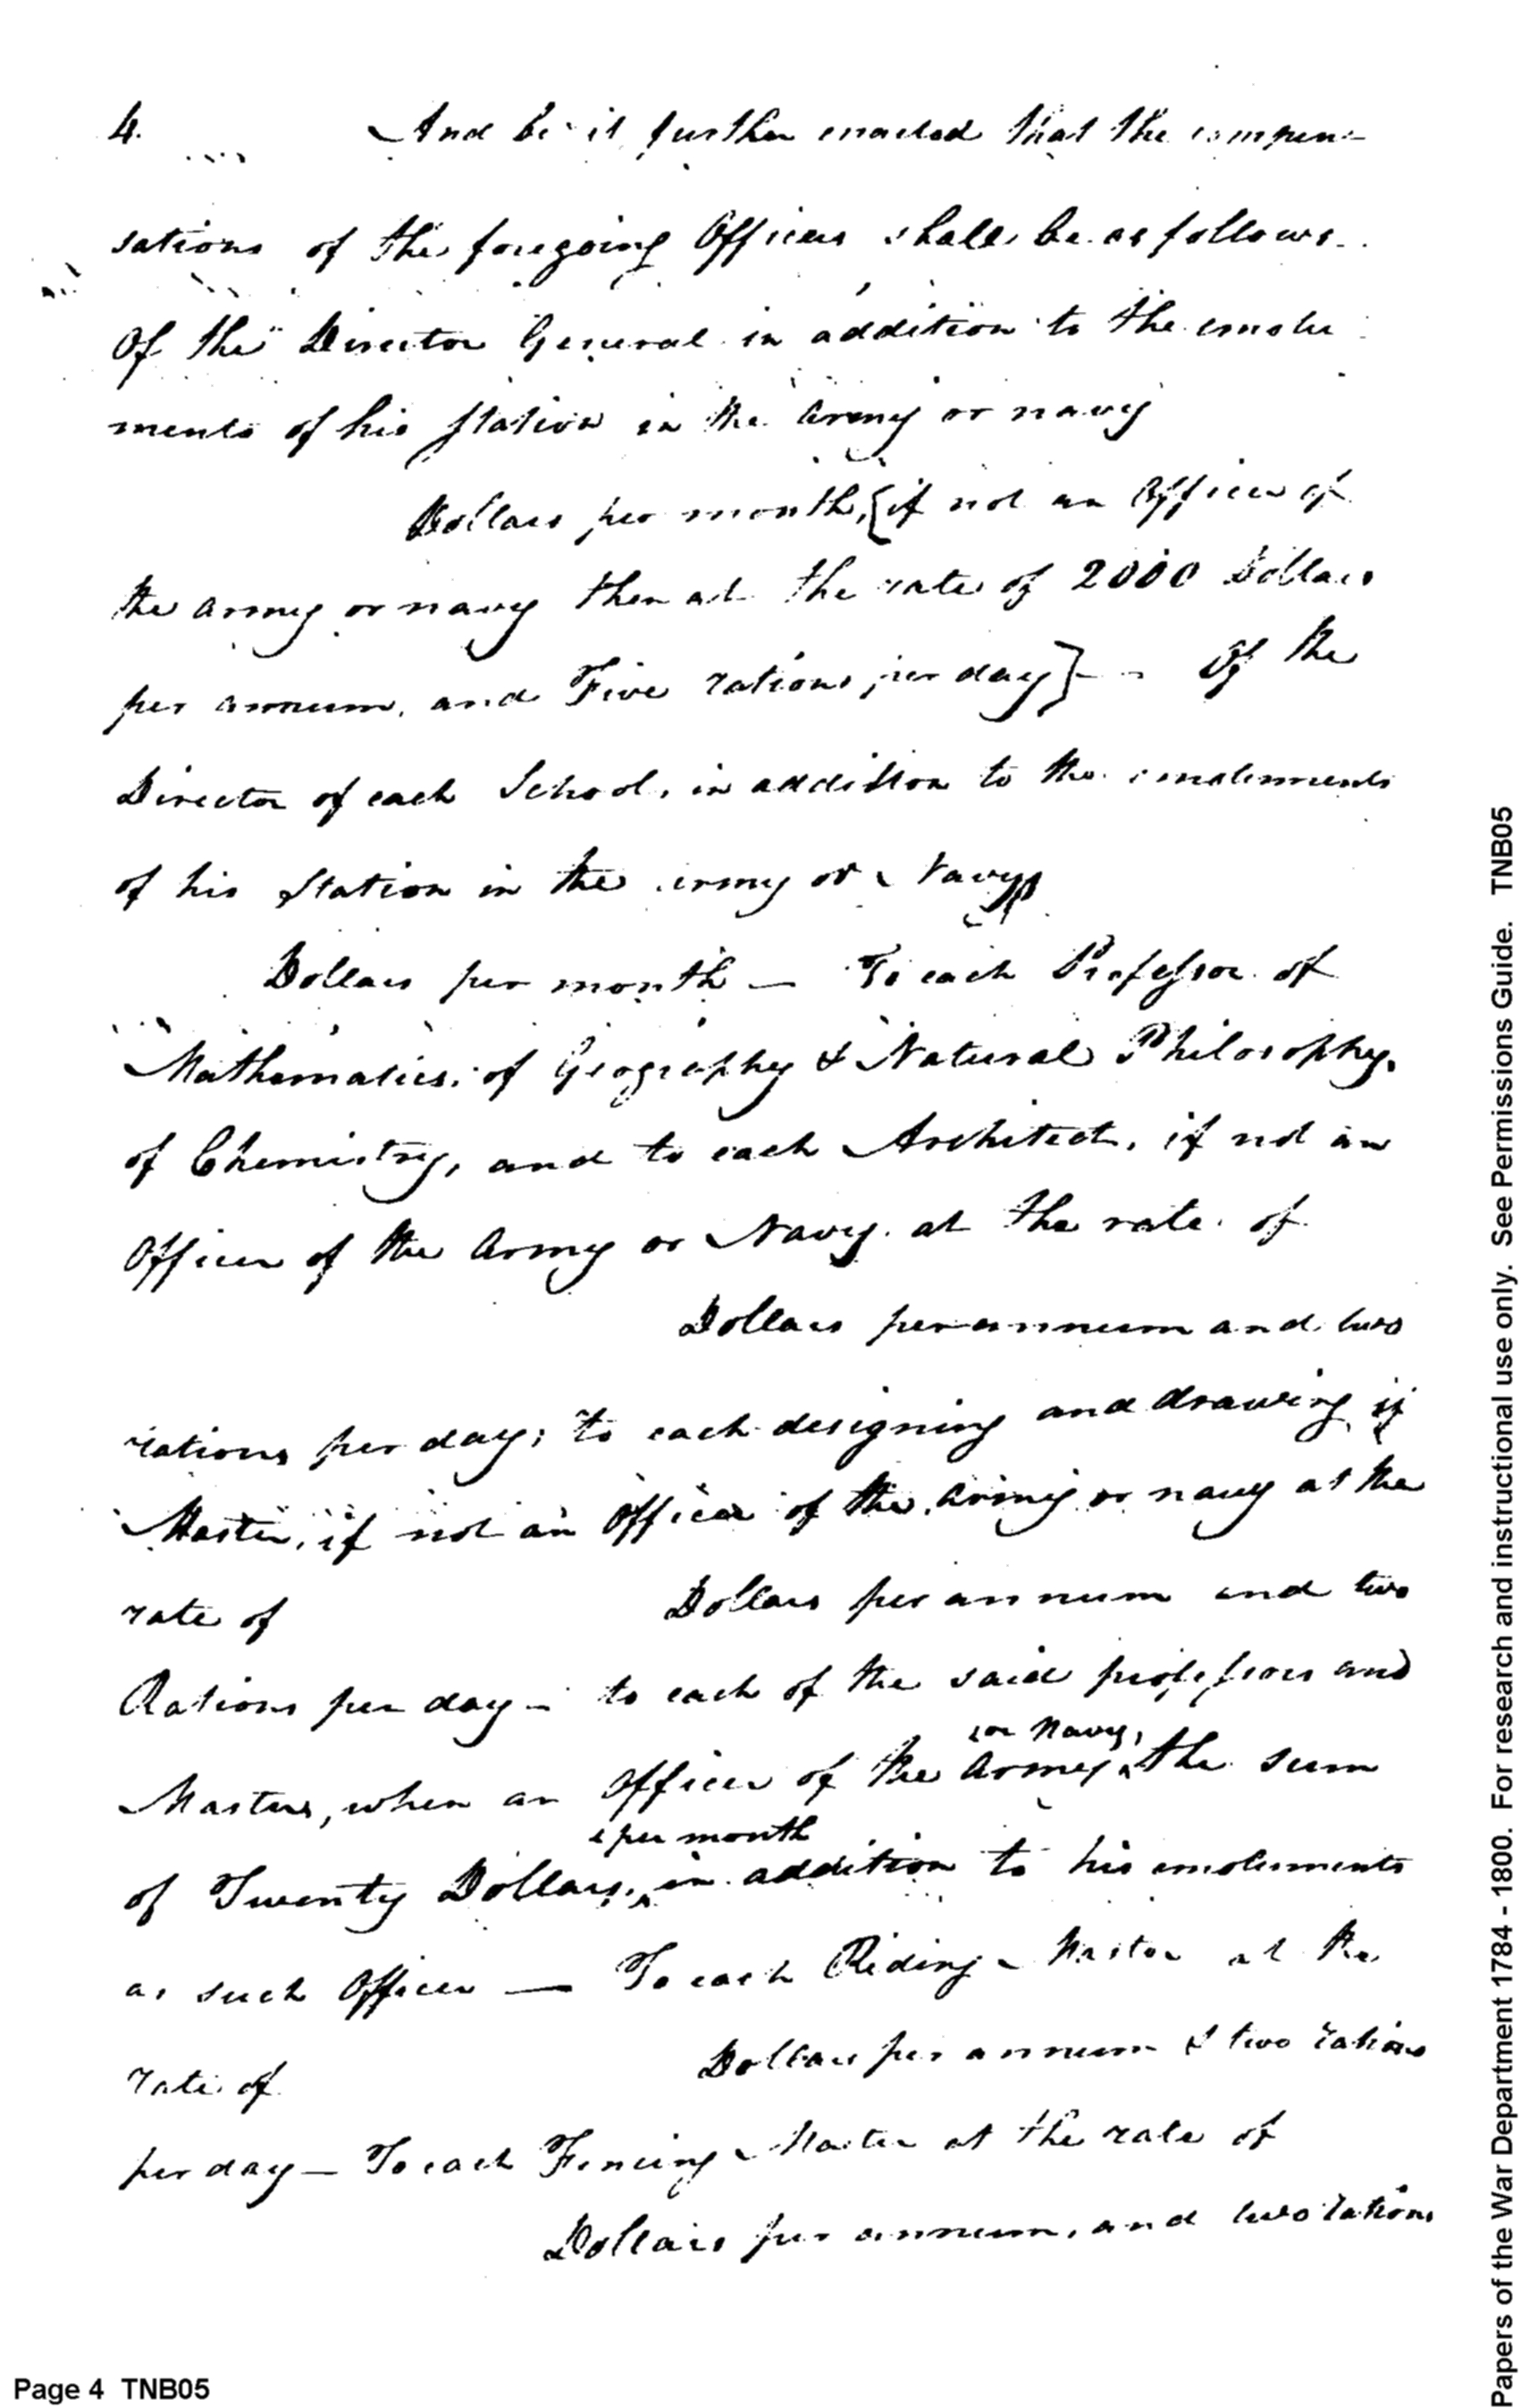 4. And be it further enacted that the compen-
sations of the foregoing Officers shall be as follows.
Of the Director General in addition to the emolu
ments of his station in the army or navy
Dollars per month, [if not an Officer of
the army or navy then at the rate of 2000 Dollars
per annum, and Five rations per day] - - Of the
Director of each School, in addition to the emoluments
of his Station in the army or Navy
Dollars per month — To each Professor of
Mathematics, of Geography & Natural Philosophy,
of Chemistry, and to each Architect, if not an
Officer of the Army or Navy. at the rate of
Dollars per annum and two
rations per day; to each designing and drawing if
Master, if not an Officer of the army or navy at the
rate of Dollars per annum and two
Rations per day — to each of the said professors and
or Navy,
Masters, when an Officer of the Army, the sum
per month
of Twenty Dollars, in addition to his emoluments
as such Officer — To each Riding Master at the
rate of Dollars per annum & two rations
per day — To each Fencing Master at the rate of
Dollars per annum, and two rations
Page 4 TNB05
Papers of the War Department 1784 - 1800. For research and instructional use only. See Permissions Guide. TNB05